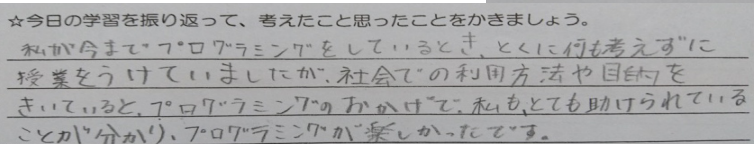 ☆今日の学習を振り返って、考えたこと思ったことをかきましょう。
私が今までプログラミングをしているとき、とくに何も考えずに
授業をうけていましたが、社会での利用方法や目的を
きいていると、プログラミングのおかげで、私も、とても助けられている
ことが分かり、プログラミングが楽しかったです。